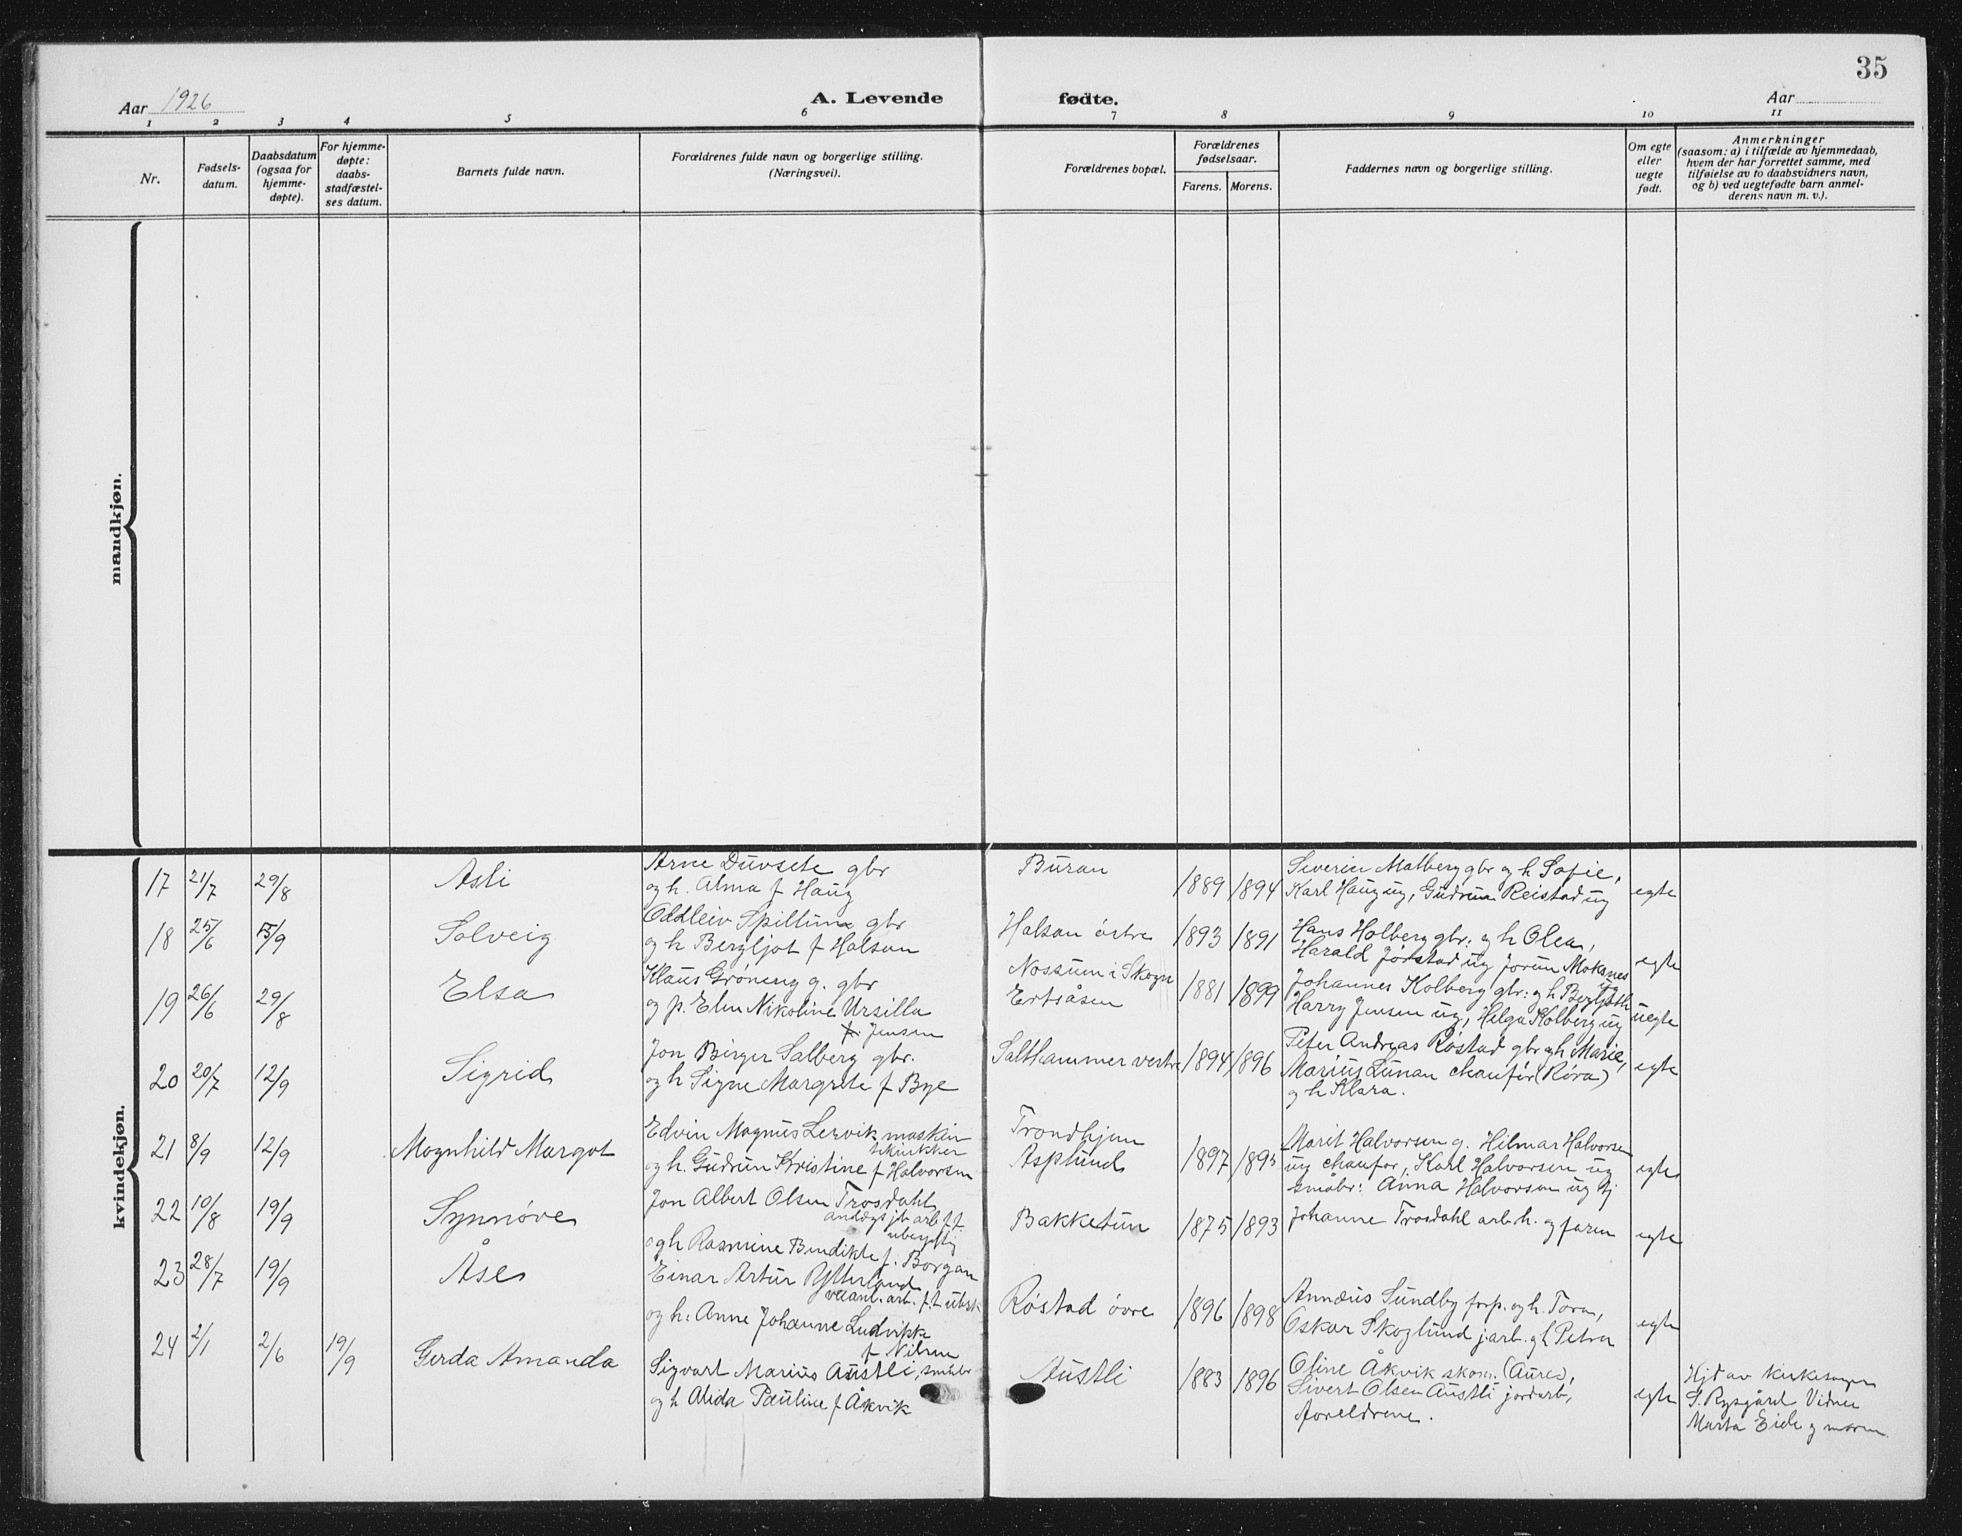 35
Aar 1926
A. Levende fødte.
Aar
1 2 3 4 5 6 7 8 9 10 11
Nr.
Fødsels-
datum.
Daabsdatum
(ogsaa for
hjemme-
døpte).
For hjemme-
døpte:
daabs-
stadfæstel-
ses datum.
Barnets fulde navn.
Forældrenes fulde navn og borgerlige stilling.
(Næringsvei).
Forældrenes bopæl.
Forældrenes
fødselsaar.
Farens. Morens.
Faddernes navn og borgerlige stilling.
Om egte
eller
uegte
født.
Anmerkninger
(saasom: a) i tilfælde av hjemmedaab,
hvem der har forrettet samme, med
tilføielse av to daabsvidners navn,
og b) ved uegtefødte barn anmel-
derens navn m. v.).
mandkjøn.
kvindekjøn.
17 21/7 29/8
Asli
Arne Duvsete gbr
og h. Alma f Haug
Buran
1889 1894
Severin Malberg gbr og h Sofie,
Karl Haug ug, Gudrun Reistad ug
egte
18 25/6 5/9
Solveig
Oddleiv Spillum gbr
og h Bergljot f Halsan
Halsan östre
1893 1891
Hans Holberg gbr. og h Olea,
Harald Jörstad ug Jorun Mokanes ug
egte
19 26/6 29/8
Elsa
Klaus Gröneng g. gbr
og p. Elen Nikoline Ursilla
Jensen
Nossum i Skogn
Ertsåsen
1881 1899
Johannes Kolberg gbr. og h Bergljoth
Harry Jensen ug, Helga Kolberg ug
uegte
20 20/7 12/9
Sigrid
Jon Birger Salberg gbr.
og h Signe Margrete f Bye
Salthammer vestre
1894 1896
Peter Andreas Röstad gbr og h Marie,
Marius Lunan chauför (Röra)
og h Klara.
egte
21 8/9 12/9
Magnhild Margot
Edvin Magnus Lervik maskin
og h. Gudrun Kristine f Halvorsen
Trondhjem
Asplund
1897
Marit Halvorsen g. Hilmar Halvorsen
ug chaufør, Karl Halvorsen ug
småbr: Anna Halvorsen ug tj
egte
22 10/8 19/9
Synnöve
Jon Albert Olsen Trosdahl
og h Rasmine Bendikte f. Borgan
Bakketun
1875 1893
Johanne Trosdahl arb. h. og faren
egte
23 28/7 19/9
Åse
Einar Artur Ytterland
og h. Anne Johanne Ludvikke
f Nilsen
Röstad övre
1896 1898
Annæus Sundby forp. og h. Tora,
Oskar Skoglund j.arb. og h Petra
egte
24 2/1 2/6 19/9
Gerda Amanda
Sigvart Marius Austli, småbr
og h Alida Pauline f Åkvik
Austli
1883 1896
Oline Åkvik skom. (Aure),
Sivert Olsen Austli jordarb,
foreldrene.
egte
Hjd av kirkesanger
S. Rysgård Vidner
Marta Eide og moren